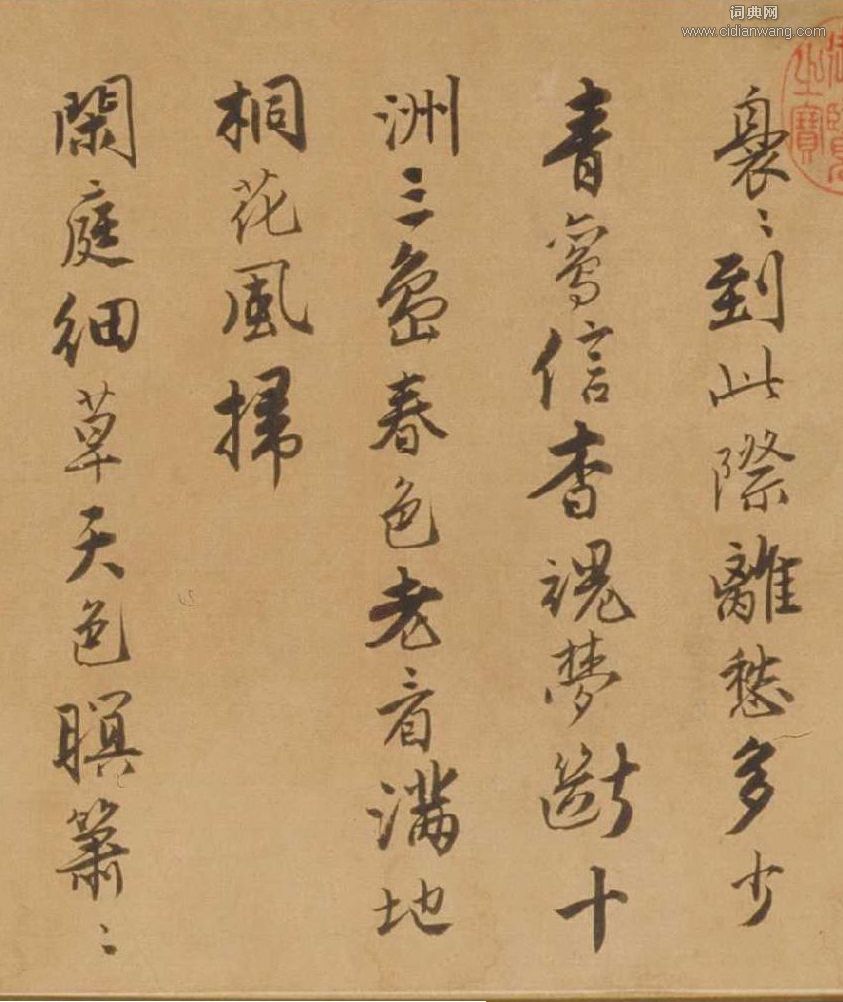 词典网
www.cidianwang.com
裊〻到此際離愁多少
青鸞信杳魂夢斷十
洲三島春色老看滿地
桐花風掃
閑庭細草天色暝簫〻
之寶